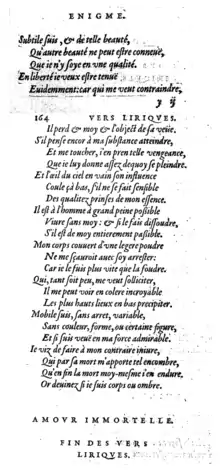 ENIGME.
Subtile suis, & de telle beauté,
Qu'autre beauté ne peut estre conneuë,
Que ie n'y soye en vne qualité.
En liberté ie veux estre tenuë
Euidemment: car qui me veut contraindre,
y ij
164 VERS LIRIQUES.
Il perd & moy & l'obiect de sa veuë.
S'il pense encor à ma substance atteindre,
Et me toucher, i'en pren telle vengeance,
Que ie luy donne assez dequoy se pleindre.
Et l'œil du ciel en vain son influence
Coule çà bas, s'il ne se fait sensible
Des qualitez prinses de mon essence.
Il est à l'homme à grand peine possible
Viure sans moy: & si le fait dissoudre,
S'il est de moy entierement passible.
Mon corps couuert d'vne legere poudre
Ne me sçauroit auec soy arrester:
Car ie le suis plus vite que la foudre.
Qui, tant soit peu, me veut solliciter,
Il me peut voir en colere incroyable
Les plus hauts lieux en bas precipiter.
Mobile suis, sans arret, variable,
Sans couleur, forme, ou certaine figure,
Et si suis veuë en ma force admirable.
Ie viz de faire à mon contraire iniure,
Qui par sa mort m'apporte tel encombre,
Qu'en fin la mort moy-mesme i'en endure.
Or deuinez si ie suis corps ou ombre.
AMOVR IMMORTELLE.
FIN DES VERS
LIRIQUES.